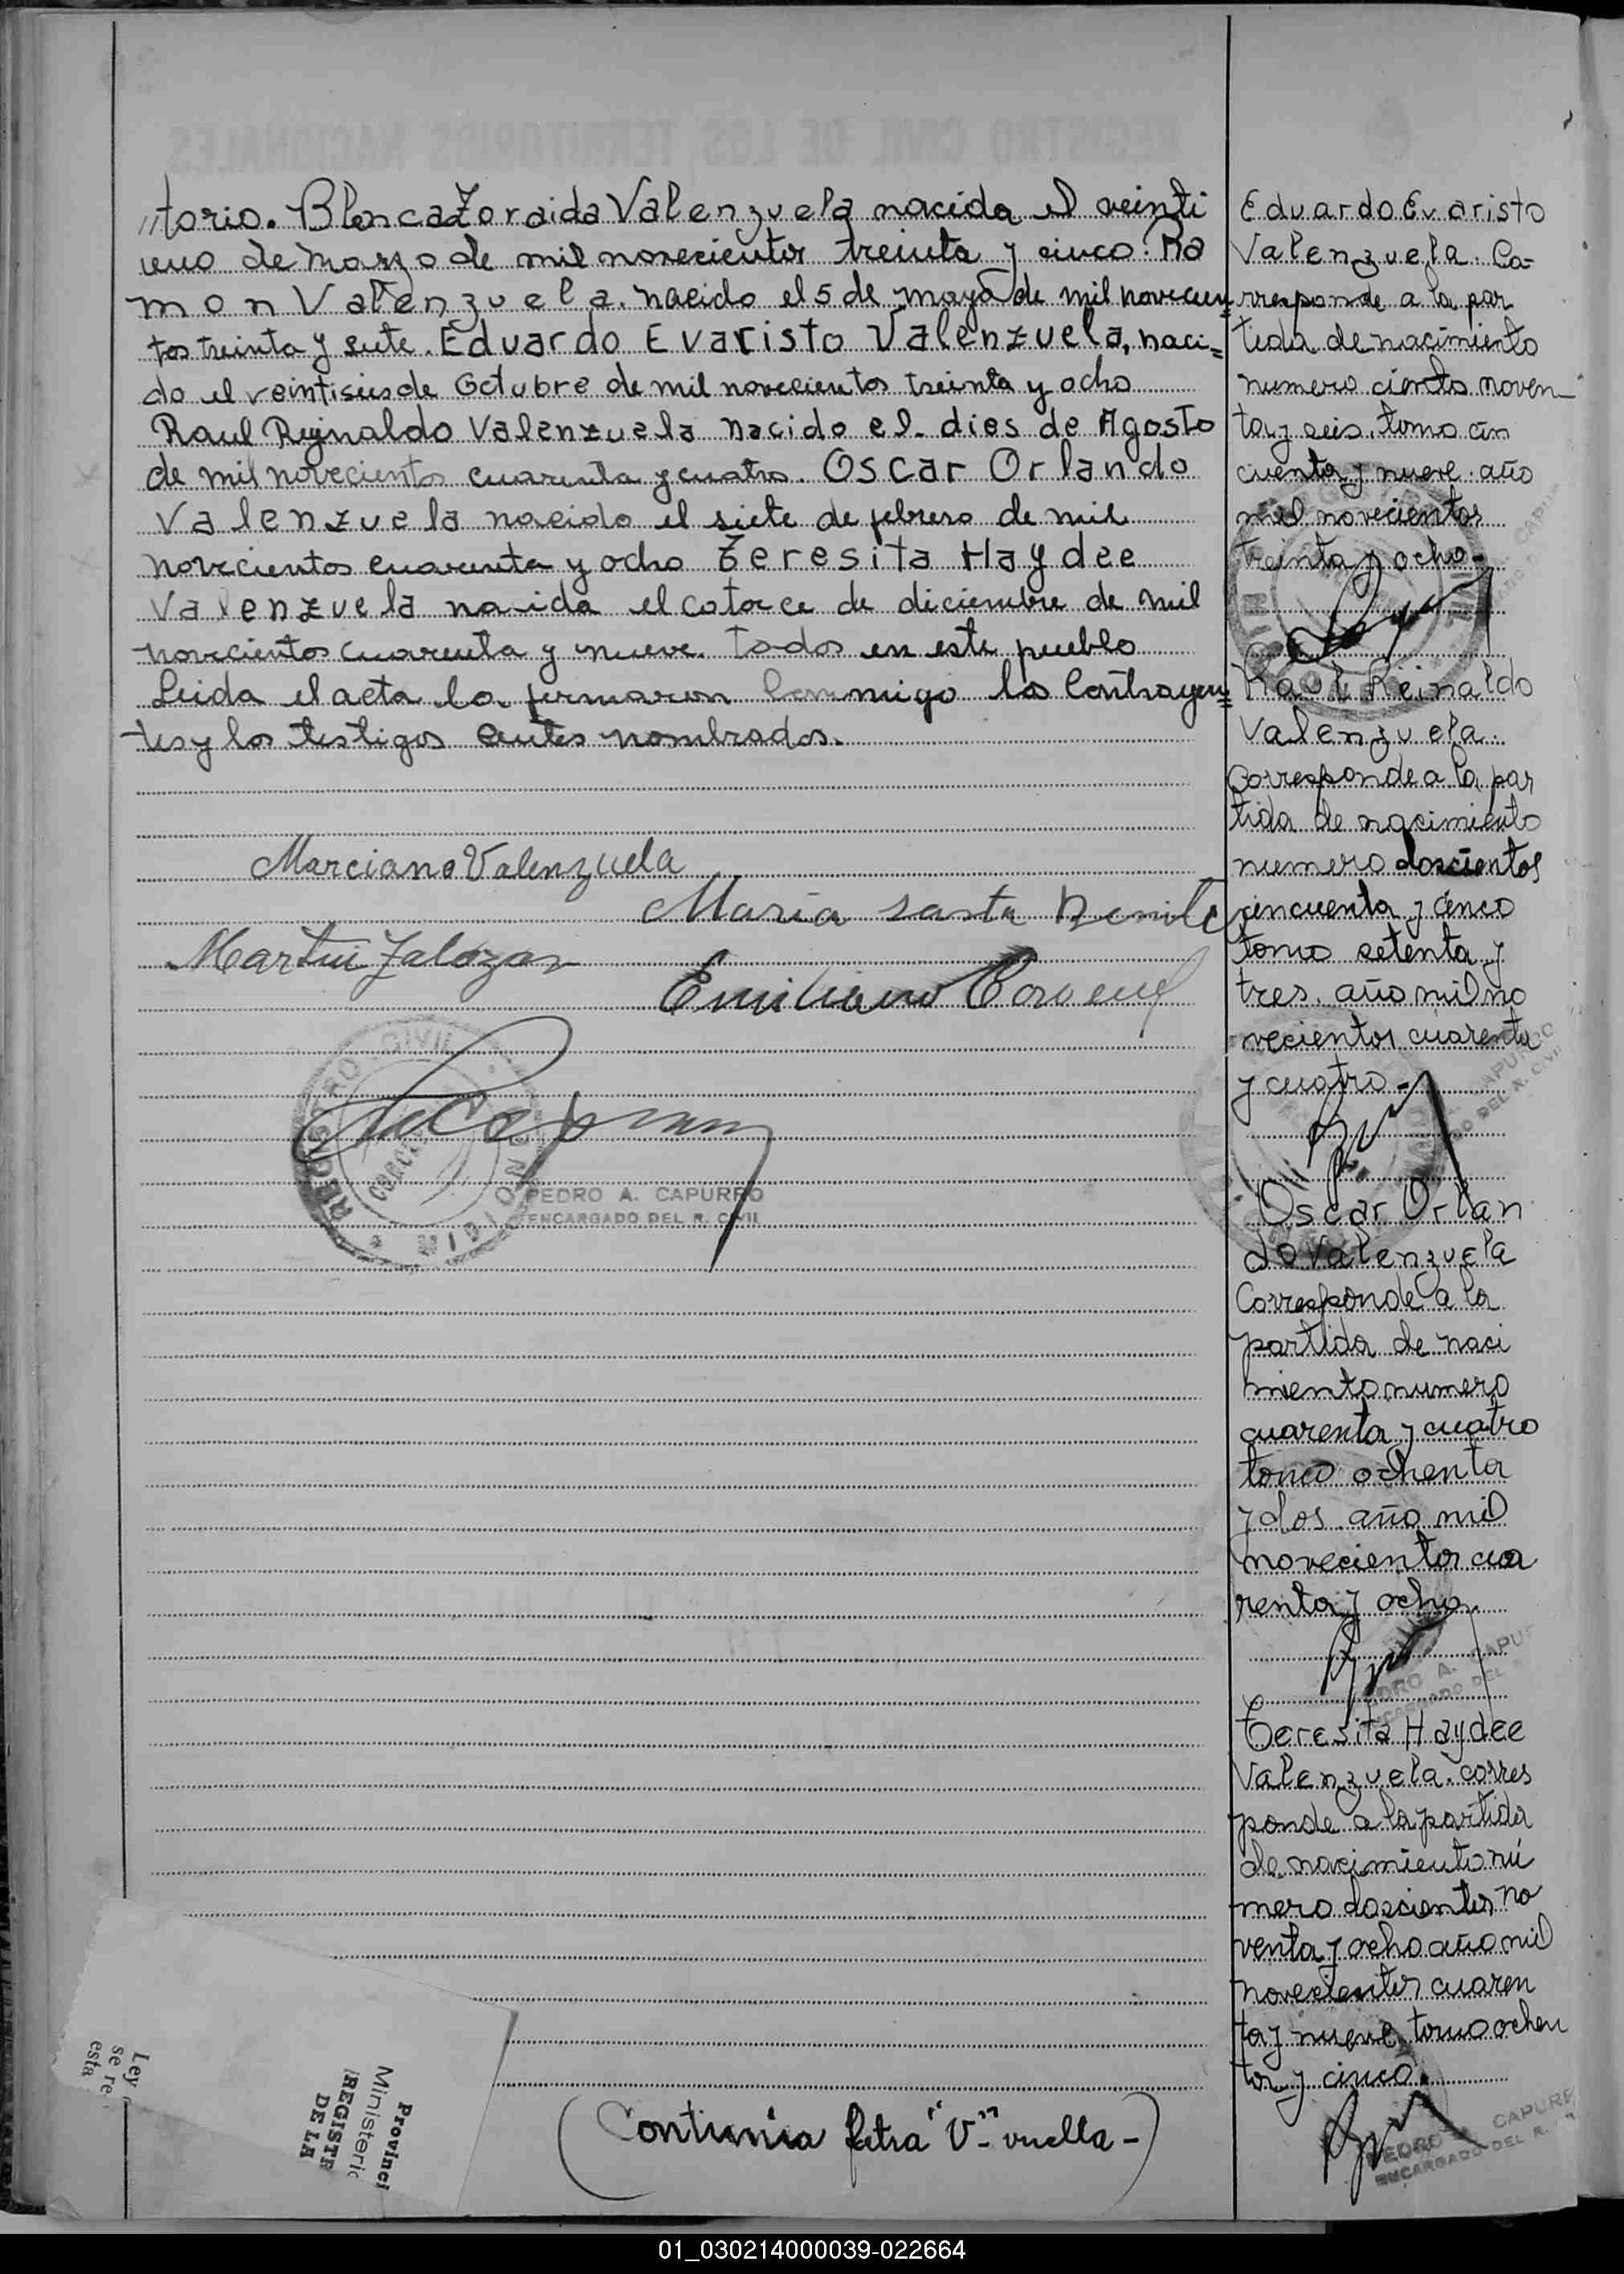 "torio. Blanca Zoraida Valenzuela nacida el veinti
uno de marzo de mil novecientos treinta y cinco. Ra
mon Valenzuela. nacido el 5 de mayo de mil novecien=
tos treinta y siete. Eduardo Evaristo Valenzuela, naci=
do el veintiseis de Octubre de mil novecientos treinta y ocho
Raul Reynaldo Valenzuela nacido el. dies de Agosto
de mil novecientos cuarenta y cuatro. Oscar Orlando
Valenzuela nacido el siete de febrero de mil
novecientos cuarenta y ocho Teresita Haydee
Valenzuela nacida el catorce de diciembre de mil
novecientos cuarenta y nueve. todos en este pueblo
Leida el acta la firmaron conmigo los Contrayen=
tes y los testigos antes nombrados.
Marciano Valenzuela
Maria sasta Benite
Martin
Emiliano
REGISTRO CIVIL
PEDRO A. CAPURRO
ENCARGADO DEL R. CIVIL
(Continúa letra "V"- vuelta-)
Eduardo Evaristo
Valenzuela. Co-
rresponde a la par
tida de nacimiento
numero ciento noven-
ta y seis, tomo cin
cuenta y nueve. año
mil novecientos
treinta y ocho-
Raul Reinaldo
Valenzuela.
Corresponde a la par
tida de nacimiento
numero doscientos
cincuenta y cinco
tomo setenta y
tres. año mil no
vecientos cuarenta
y cuatro-
CAPURRO
DEL R. CIVIL
Oscar Orlan
do Valenzuela
Corresponde a la
partida de naci
miento numero
cuarenta y cuatro
tomo ochenta
y dos. año mil
novecientos cua
renta y ocho.
Teresita Haydee
Valenzuela. corres
ponde a la partida
de nacimiento nú
mero doscientos no
venta y ocho año mil
novecientos cuaren
ta y nueve tomo ochen
ta y cinco.
PEDRO CAPURR
ENCARGADO DEL R.
Ley
se re
esta
Provinci
Ministeric
REGISTR
DE LA
01_030214000039-022664